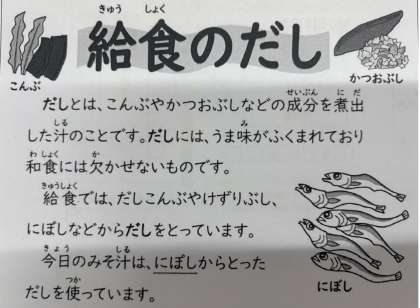 きゅう しょく
給食のだし
こんぶ
かつおぶし
せいぶん にだ
だしとは、こんぶやかつおぶしなどの成分を煮出
しる み
した汁のことです。だしには、うま味がふくまれており
わしょく か
和食には欠かせないものです。
きゅうしょく
給食では、だしこんぶやけずりぶし、
にぼしなどからだしをとっています。
きょう しる
今日のみそ汁は、にぼしからとった
つか
だしを使っています。
にぼし